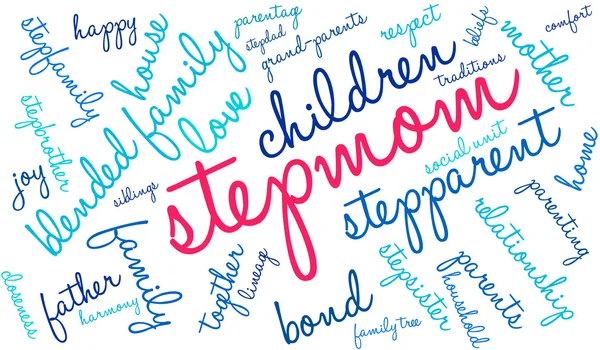 stepfamily
happy
house
parentage
stepdad
grand-parents
respect
beliefs
comfort
mother
traditions
children
love
blended family
stepbrother
joy
siblings
stepmom
social unit
stepparent
home
parenting
relationship
family
father
closeness
harmony
together
lineag
bond
stepsister
family tree
parents
household